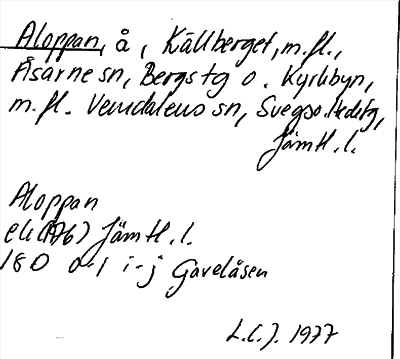 Aloppan, å, Källberget, m.fl.,
Åsarne sn, Bergs tg o. Kyrkbyn,
m.fl. Vemdalens sn, Svegs o. Hede tg,
Jämtl. l.
Aloppan
ek (1976) Jämtl. l.
18 D 0-1 i-j Gavelåsen
L.C.J. 1977